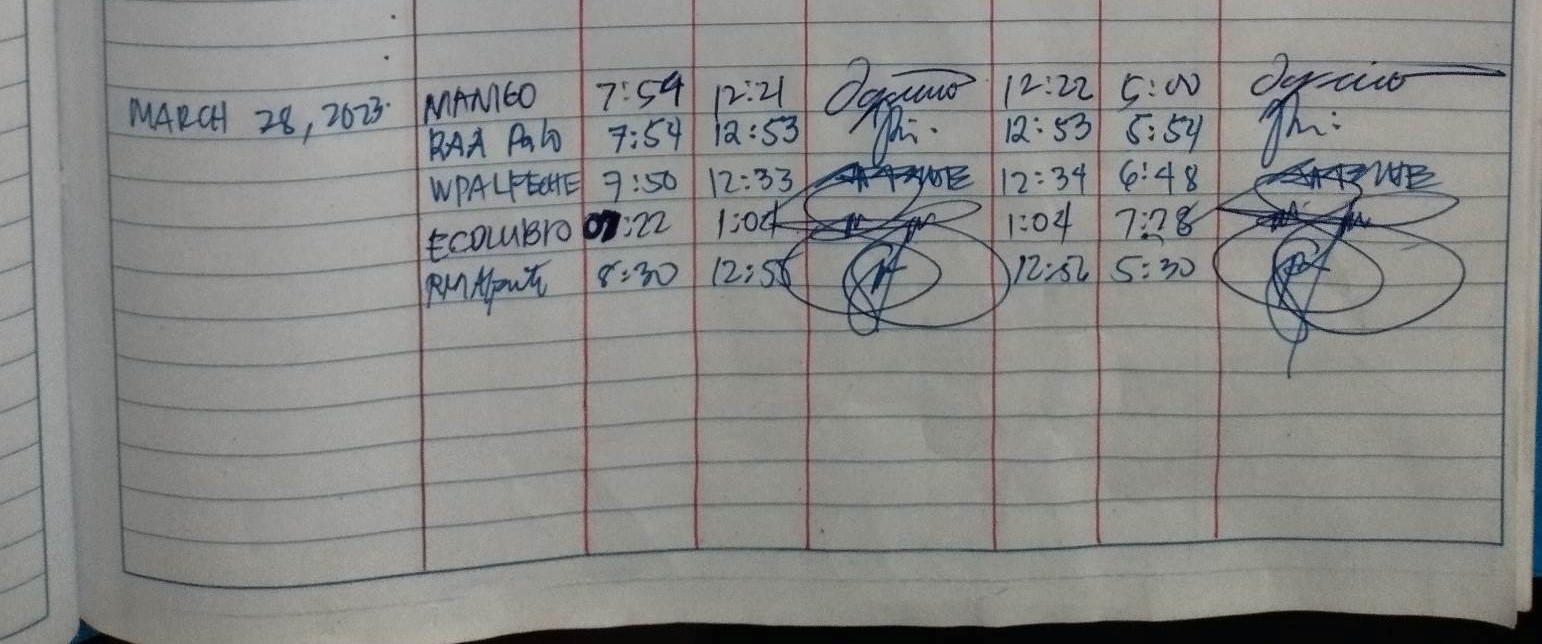 MARCH 28, 2023. MANGO 7:54 12:21 12:22 5:00
RAA Palo 7:54 12:53 12:53 5:54
WPALFECHE 7:50 12:33 12:34 6:48
ECOLUBIO 07:22 1:04 1:04 7:28
8:30 12:55 12:56 5:30